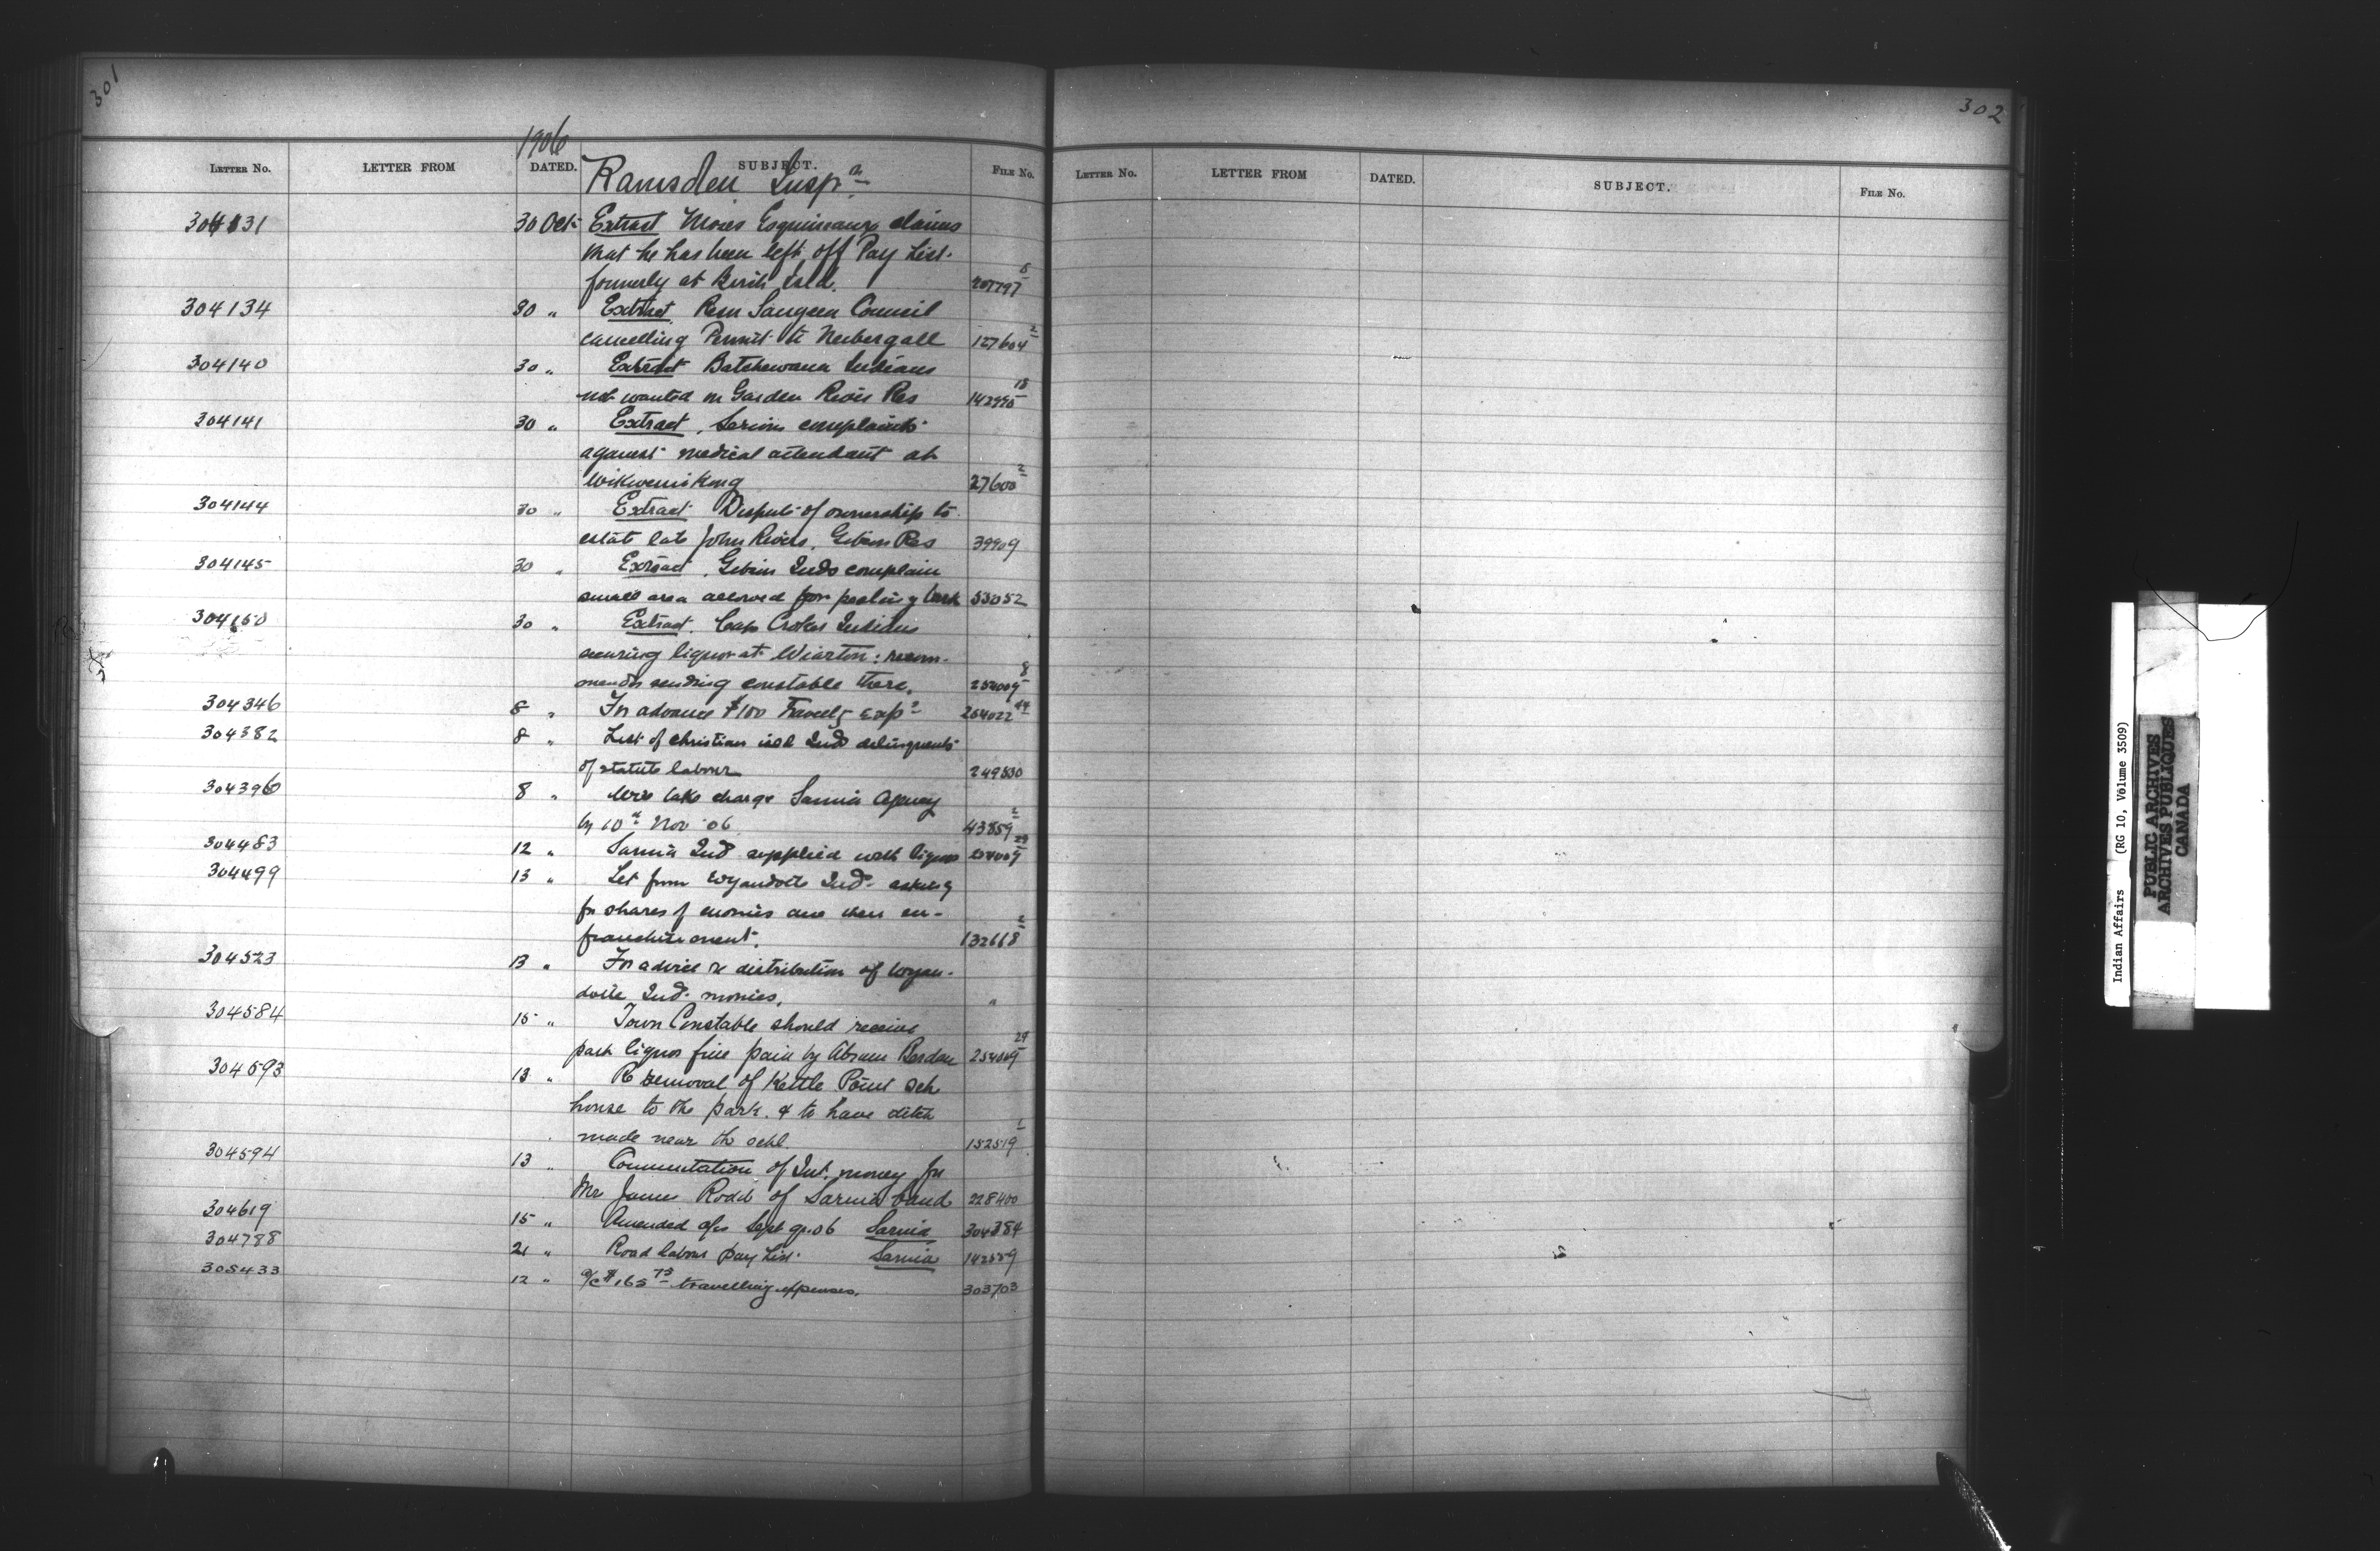 301
1906
LETTER No. LETTER FROM DATED. SUBJECT. FILE No.
Ramsden Insp.n
304131 30 Oct Extract Moses Esquimaux claims
that he has been left off Pay List.
formerly at Isld. 207797 8
304134 30 " Extract Resn Saugeen Council
cancelling Permit to Neibergall 127604 2
304140 30 " Extract Batchewana Indians
not wanted on Garden River Res 142990 18
304141 30 " Extract, Serious complaints
against medical attendant at
Wikwemikong 27600 2
304144 30 " Extract Dispute of ownership to
estate late John Rivers, Gibson Res 39909
304145 30 " Extract, Gibson Inds complain
small area allowed for peeling bark 33052
304150 30 " Extract. Cape Croker Indians
securing liquor at Wiarton: recom-
mends sending constable there. 254009 8
304346 8 " For advance $100 Travelg exps 254022 44
304382 8 " List of Christian isld Inds delinquents
of statute labour 249830
304390 8 " Will take charge Sarnia Agency
by 10th Nov 06 43859
304483 12 " Sarnia Inds supplied with liquor 254009 29
304499 13 " Let from Wyandotte Inds. asking
for shares of monies due when en-
franchisement. 132668
304523 13 " For advice re distribution of Wyan-
dotte Ind. monies. "
304584 15 " Town Constable should receive
part liquor fine paid by Abram 254009 29
304593 13 " Re removal of Kettle Point Sch
house to the park. & to have ditch
made near the schl. 152519 1
304594 13 " Commutation of Int. money for
Mrs James Rodd of Sarnia band 228400
304619 15 " Amended a/cs Sept qr. 06 Sarnia 304384
304788 21 " Road labour pay list Sarnia 142559
305433 12 " a/c $165 75 travelling expenses. 303703
302
LETTER No. LETTER FROM DATED. SUBJECT. FILE No.
Indian Affairs (RG 10, Volume 3509)
PUBLIC ARCHIVES
ARCHIVES PUBLIQUES
CANADA